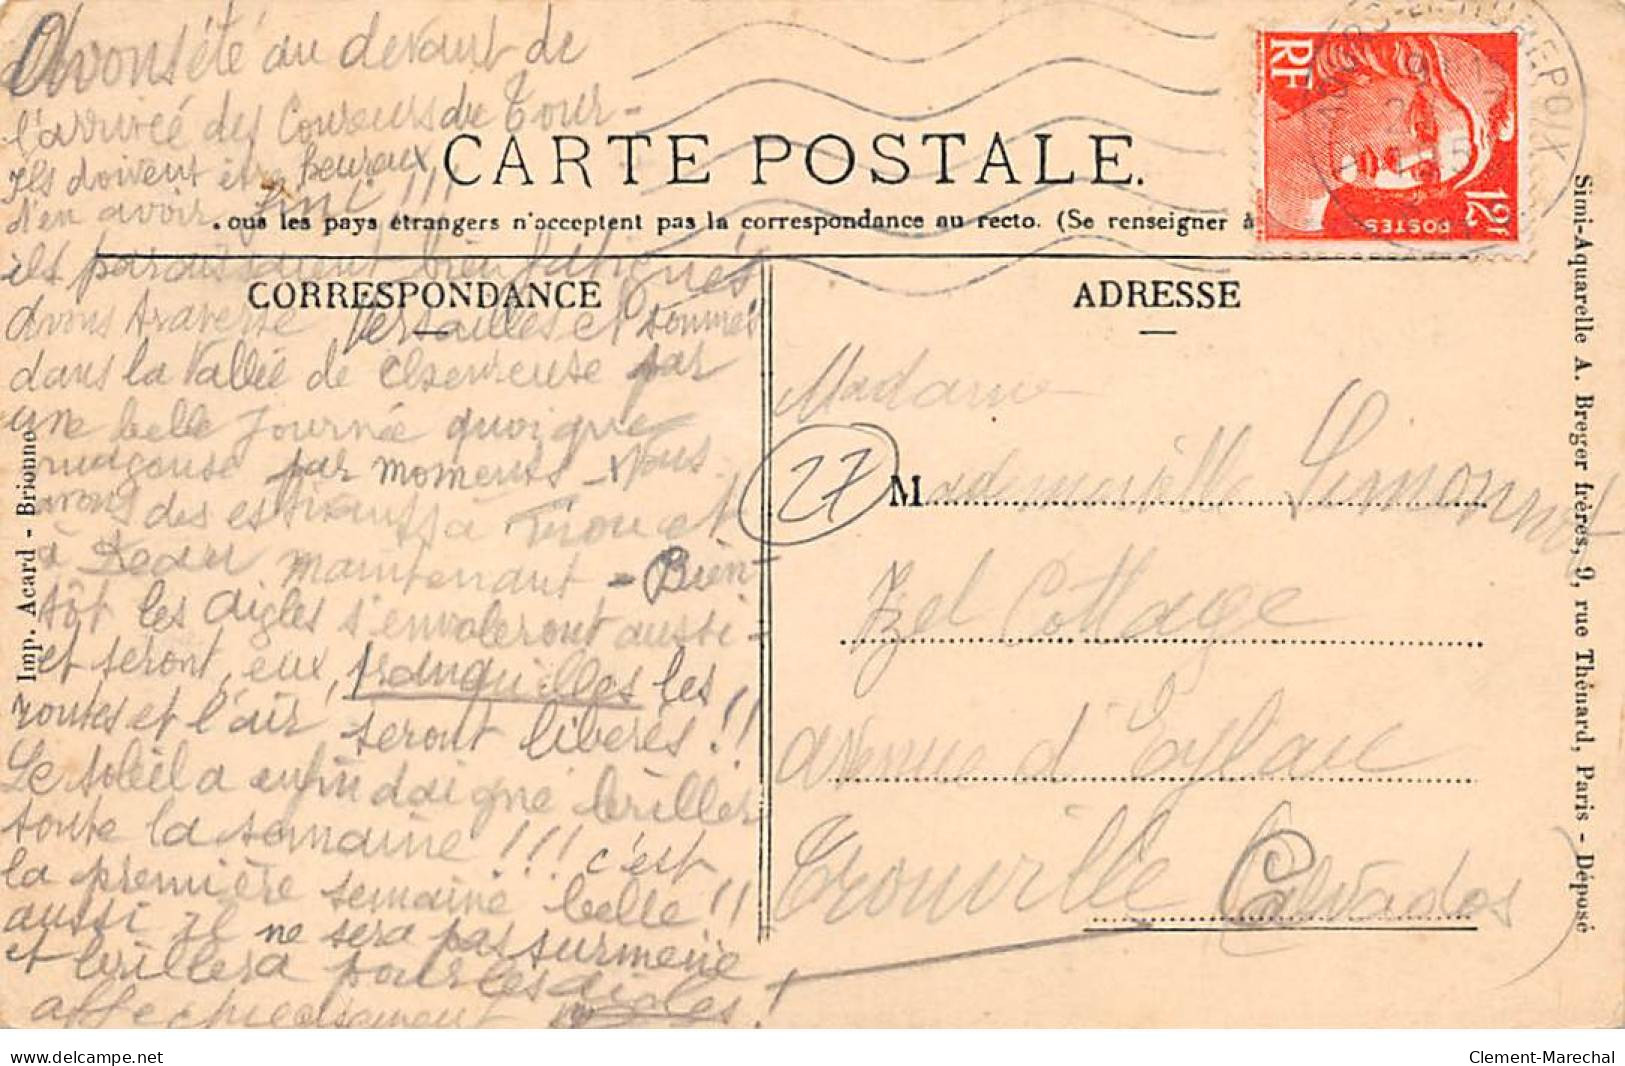 Avons été au devant de
l'arrivée des Coureurs du Tour -
Ils doivent être heureux
d'en avoir fini !!!
ils paraissaient bien fatigués
Avons traversé Versailles et sommes
dans la Vallée de Chevreuse par
une belle Journée quoique
nuageuse par moments - Nous
avons des estivants à Trou et
à maintenant - Bien-
tôt les aigles s'envoleront aussi -
et seront, eux, tranquilles les
routes et l'air seront libérés !!
Le soleil a enfin daigné briller
toute la semaine !!! c'est
la première semaine belle !!
aussi il ne sera pas surmené
et brillera pour les aigles !
affectueusement
CARTE POSTALE.
ous les pays étrangers n'acceptent pas la correspondance au recto. (Se renseigner à
CORRESPONDANCE
ADRESSE
RF
12F
POSTES
27
Madame
Mademoiselle Simonnot
Cottage
avenue d'Eylau
Trouville Calvados
Imp. Acard - Brionne
Simi-Aquarelle A. Breger frères, 9, rue Thénard, Paris - Déposé
www.delcampe.net
Clement-Marechal